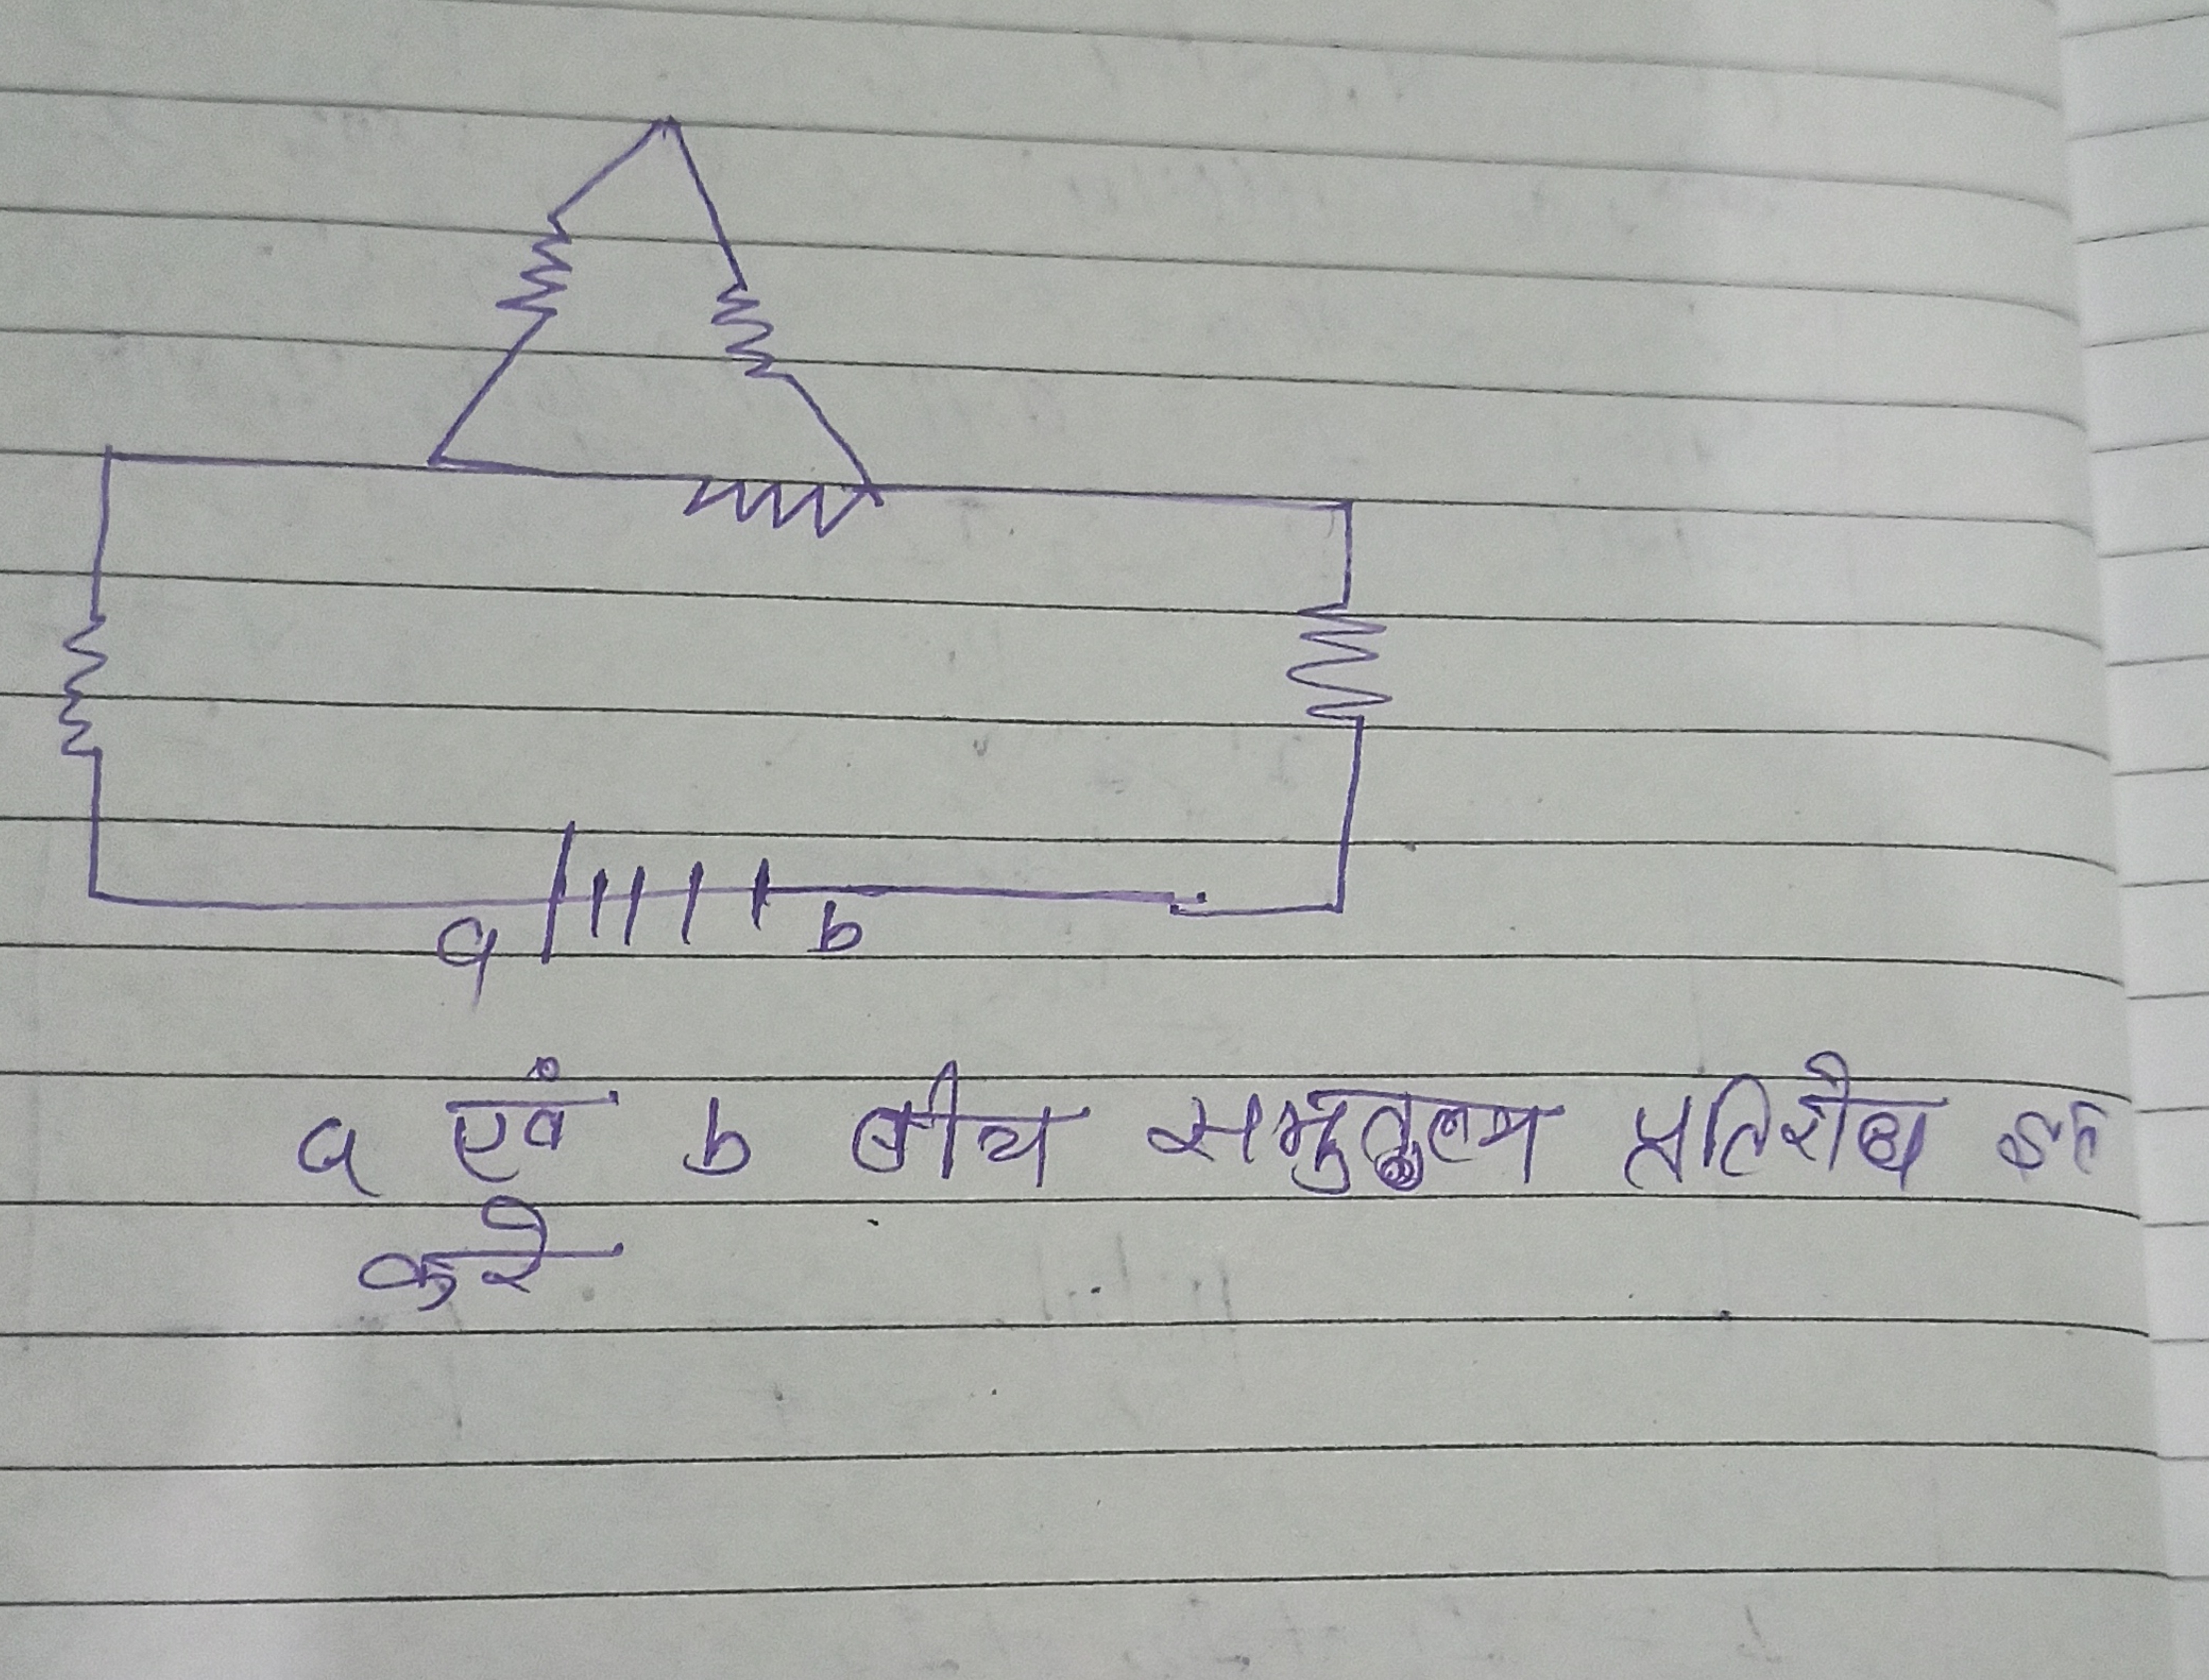 a b
a एवं b बीच समतुल्य प्रतिरोध
करे